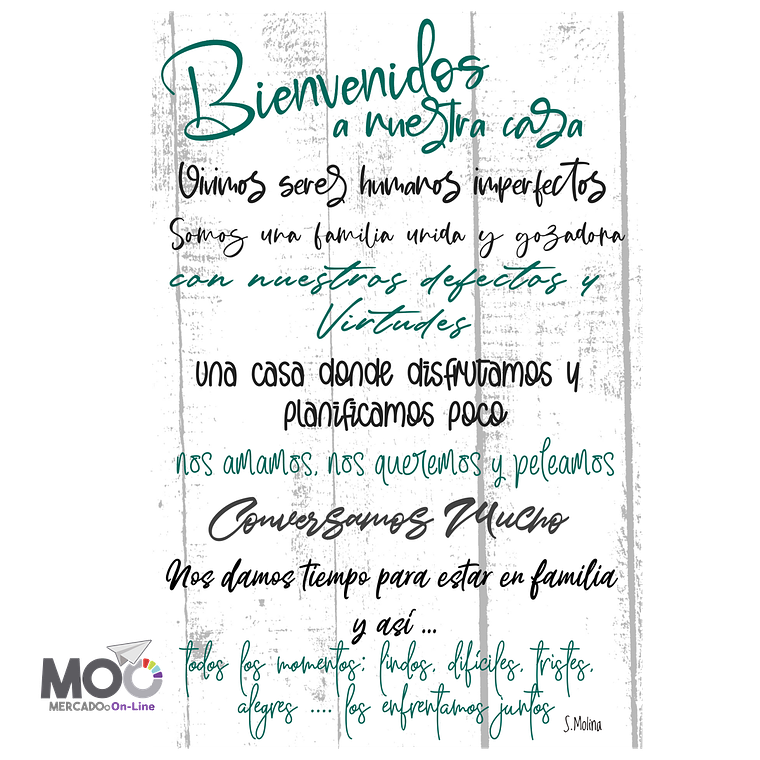 Bienvenidos
a nuestra casa
Vivimos seres humanos imperfectos
Somos una familia unida y gozadora
con nuestros defectos y
Virtudes
una casa donde disfrutamos y
planificamos poco
nos amamos, nos queremos y peleamos
Conversamos Mucho
Nos damos tiempo para estar en familia
y así ...
todos los momentos: lindos, difíciles, tristes,
alegres .... los enfrentamos juntos
S.Molina
MOO
MERCADOO On-Line